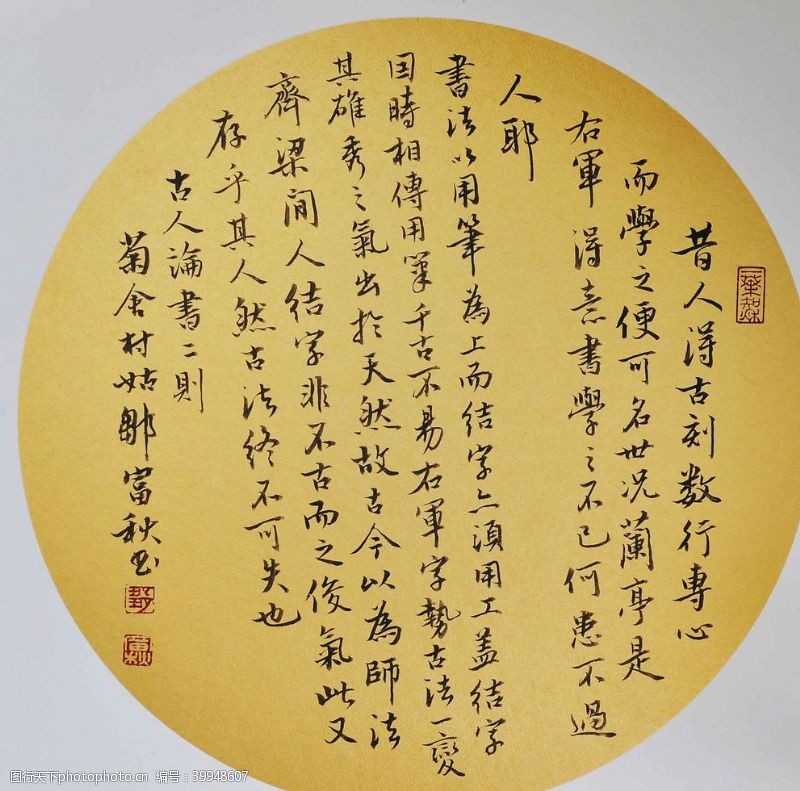 昔人得古刻数行專心
而學之便可名世况蘭亭是
右軍得意書學之不已何患不過
人耶
書法以用筆為上而結字亦須用工盖結字
因時相傳用筆千古不易右軍字勢古法一變
其雄秀之氣出於天然故古今以為師法
齊梁間人結字非不古而之俊氣此又
存乎其人然古法終不可失也
古人論書二則
菊舍村姑鄒富秋书
富秋
图行天下photophoto.cn 编号:39948607